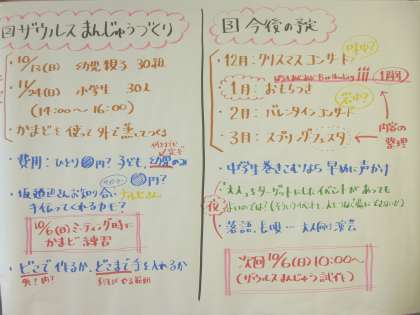 回ザウルス まんじゅうづくり
・10/13(日) 幼児親子 30組
・11/24(日) 小学生 30人
(14:00〜16:00)
・かまどを使って外で蒸してつくる
・費用：ひとり 円? 子ども、幼児のみ
円?
手伝ってくれるかも?
10/6(日)ミーティング時に
かまど練習
・どこで作るか、どこまで手を入れるか
外?内?
③ 今後の予定
・12月：クリスマスコンサート
・1月：おもちつき
1周年
・2月：バレンタインコンサート
・3月：スプリングフェスタ
内容の
整理
・中学生巻きこむなら早めに声かけ
・大人をターゲットにしたイベントがあっても
夜
・落語、長唄…大人向け演芸
次回 10/6(日)10:00〜
(ザウルスまんじゅう試作)